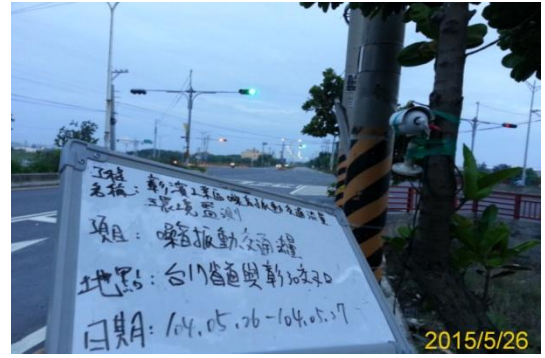 工程
名稱：彰濱工業區噪音振動交通流量
環境監測
項目：噪音振動交通糧
地點：台17省道與彰30交叉口
日期：104.05.26-104.05.27
2015/5/26